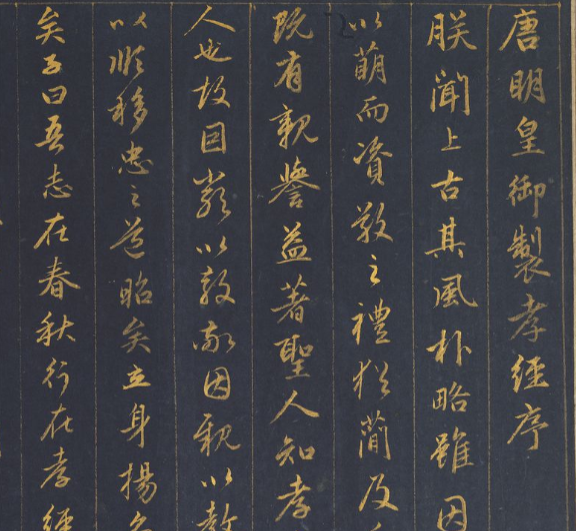 唐明皇御製孝經序
朕聞上古其風朴略雖因
以萌而資敬之禮猶簡及
既有親譽益著聖人知孝
人也故因嚴以教敬因親以教
以順移忠之道昭矣立身揚名
矣子曰吾志在春秋行在孝經